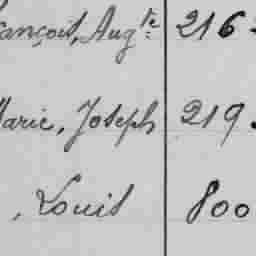 ançois, Aug^te 216
Marie, Joseph 219
, Louis 800